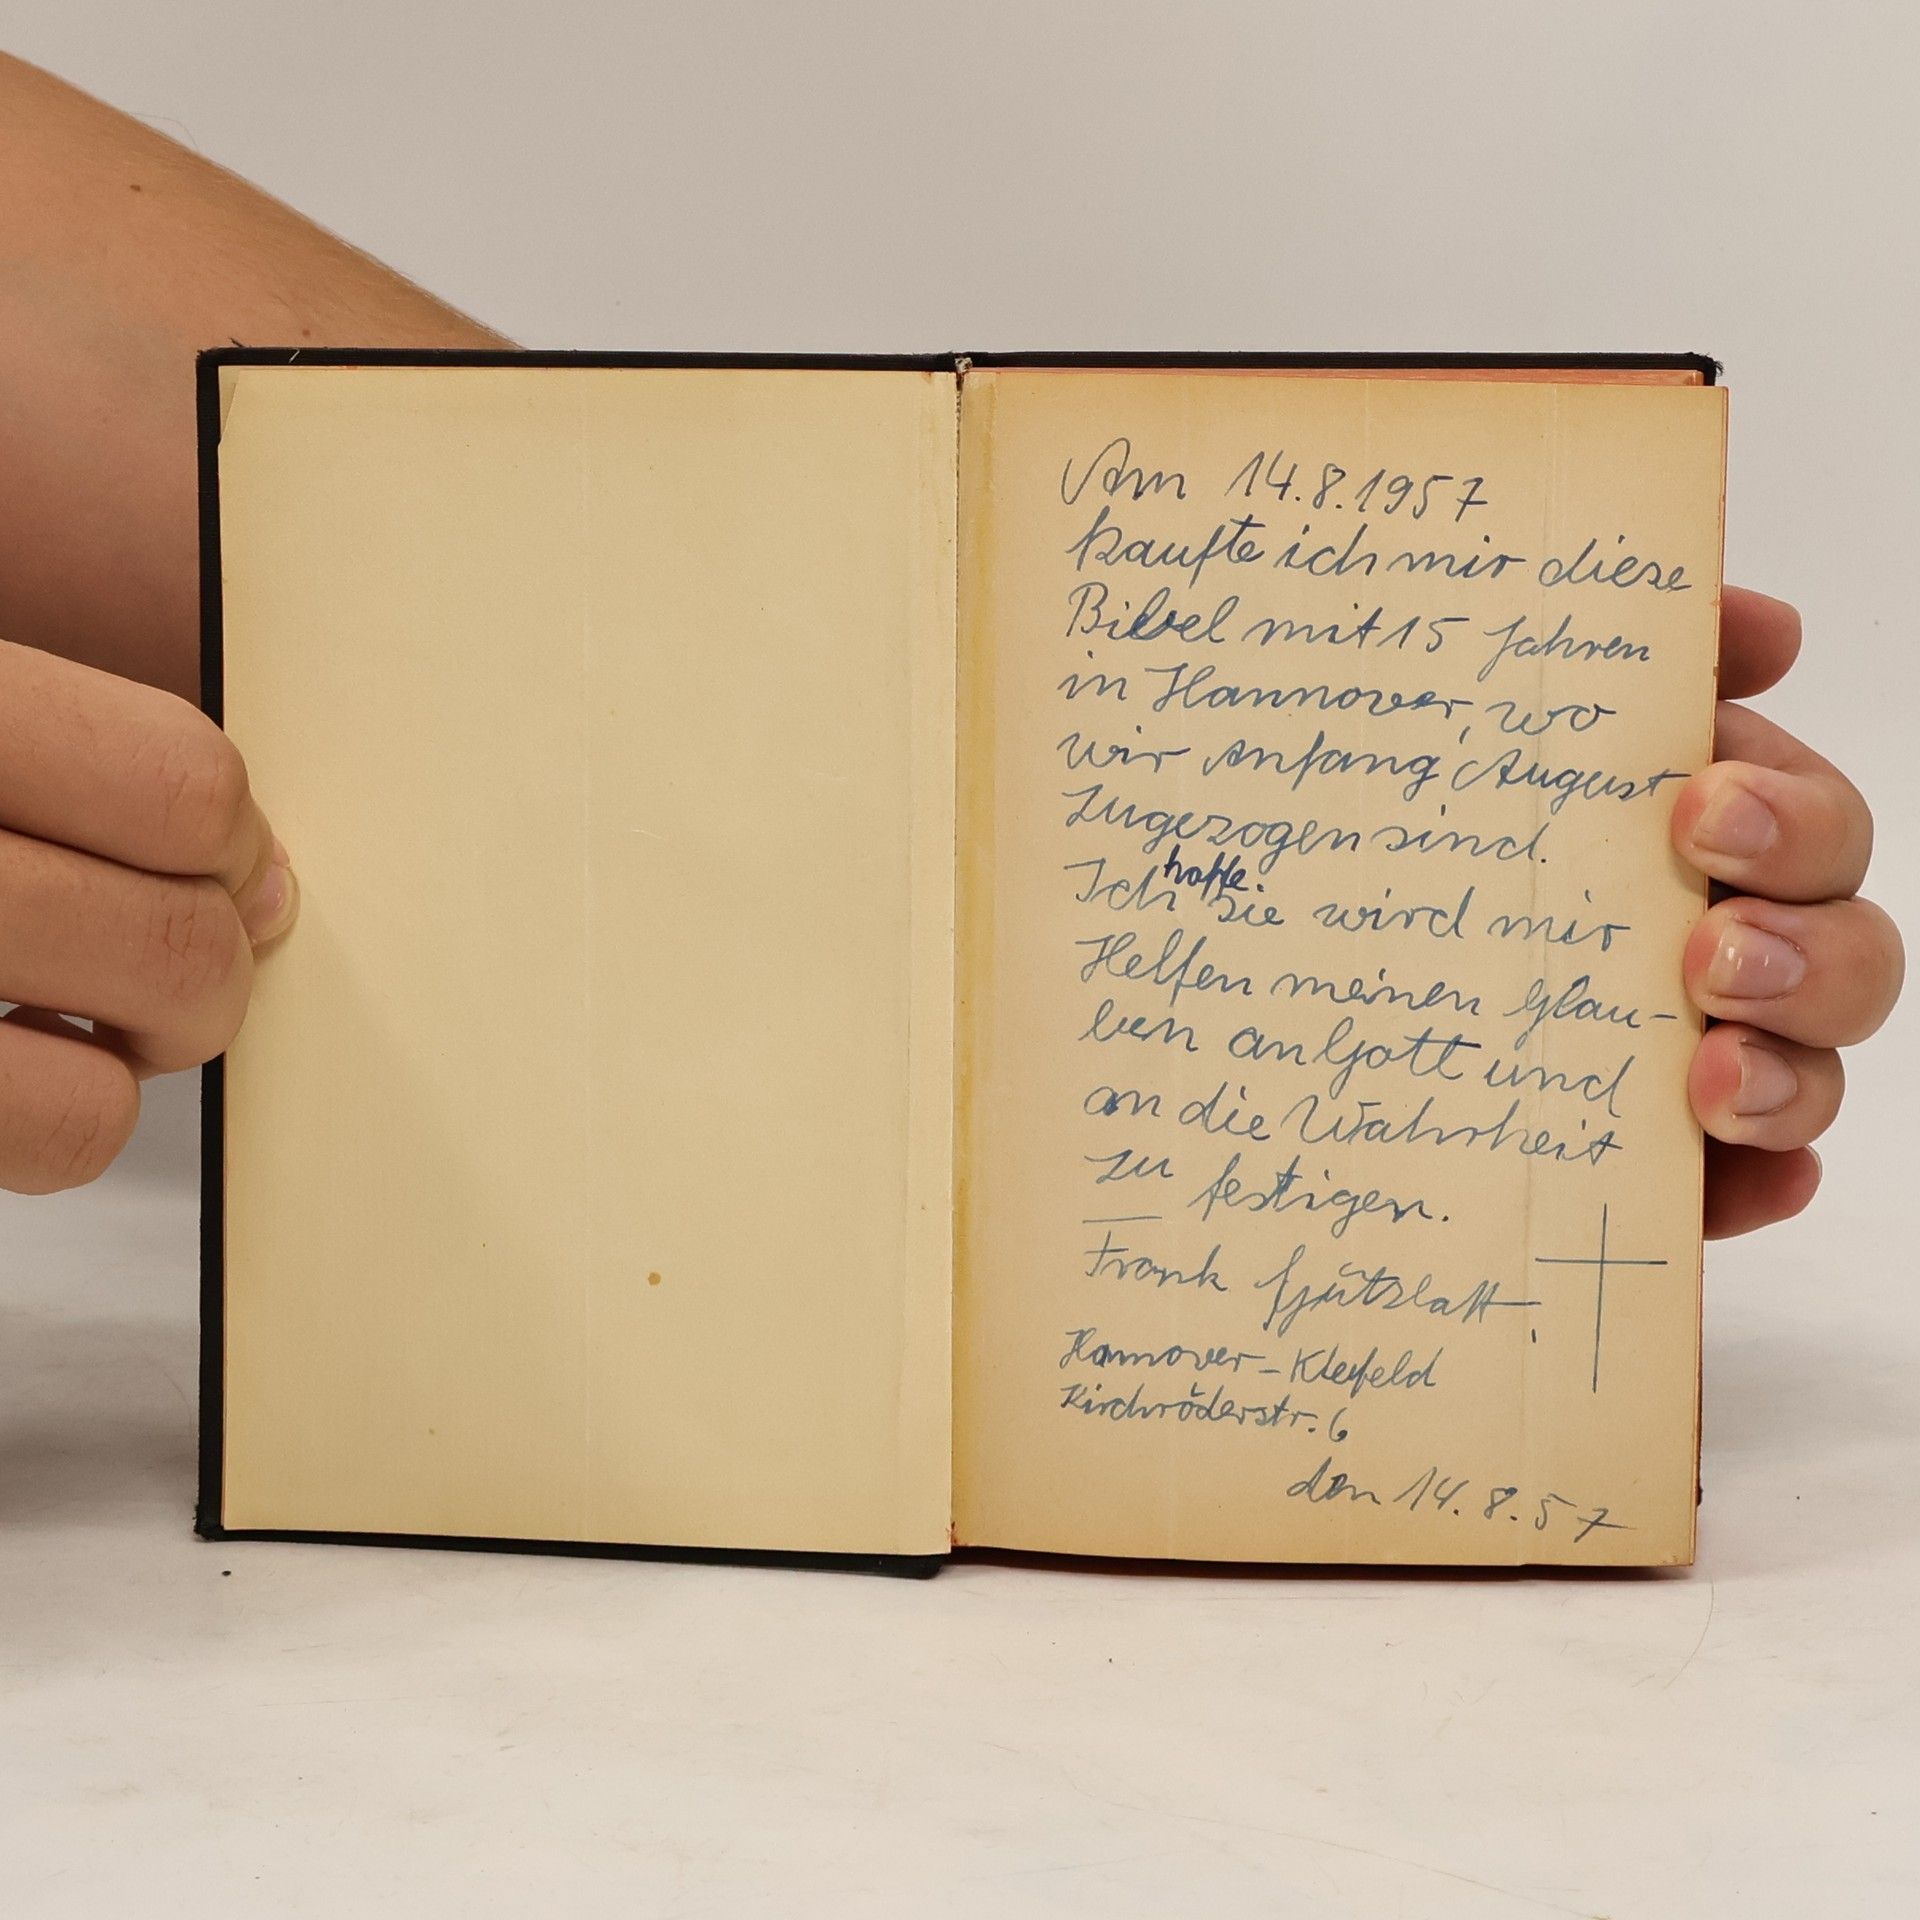 Am 14.8.1957
kaufte ich mir diese
Bibel mit 15 Jahren
in Hannover, wo
wir Anfang August
zugezogen sind.
hoffe.
Ich sie wird mir
Helfen meinen Glau-
ben an Gott und
an die Wahrheit
zu festigen.
Frank
Hannover - Kleefeld
Kirchröderstr. 6
den 14.8.57